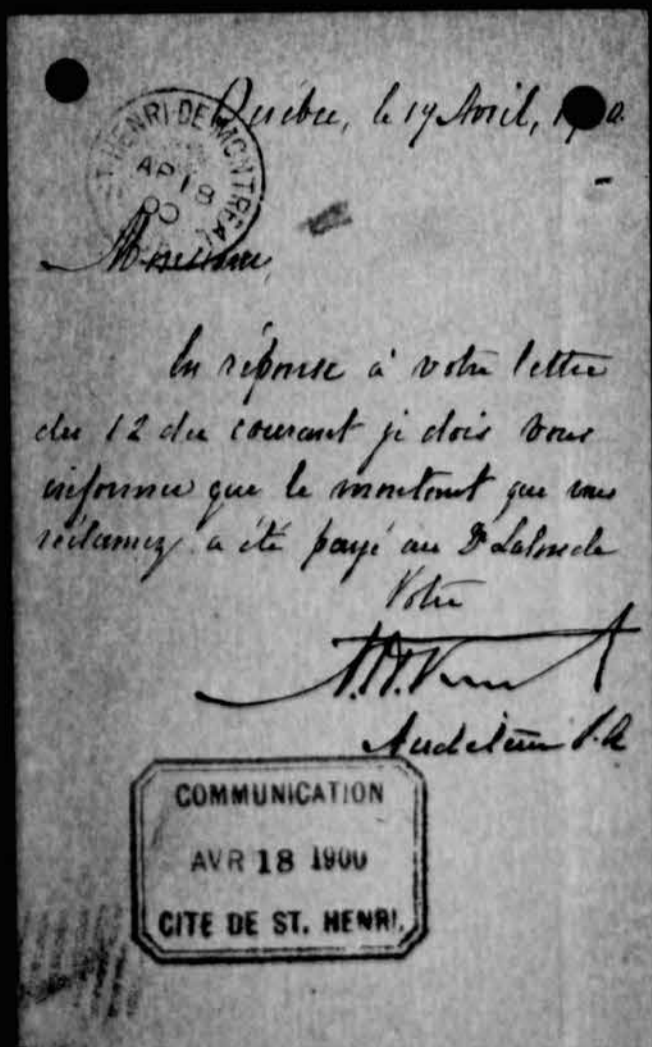 Québec, le 17 Avril, 1900
ST. HENRI DE MONTREAL
AP 18
00
Monsieur,
En réponse à votre lettre
du 12 du courant je dois vous
informer que le montant que vous
réclamez a été payé au Dr Lalonde
Votre
Auditeur P.Q
COMMUNICATION
AVR 18 1900
CITE DE ST. HENRI.